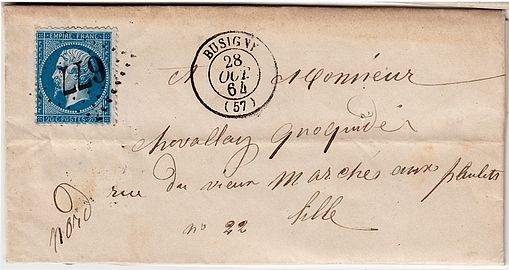 EMPIRE FRANC
20 C POSTES 20 C
677
BUSIGNY
28
OCT
64
(57)
A Monsieur
Chovallay
rue du vieux Marches aux poulets
no 22
Lille
Nord